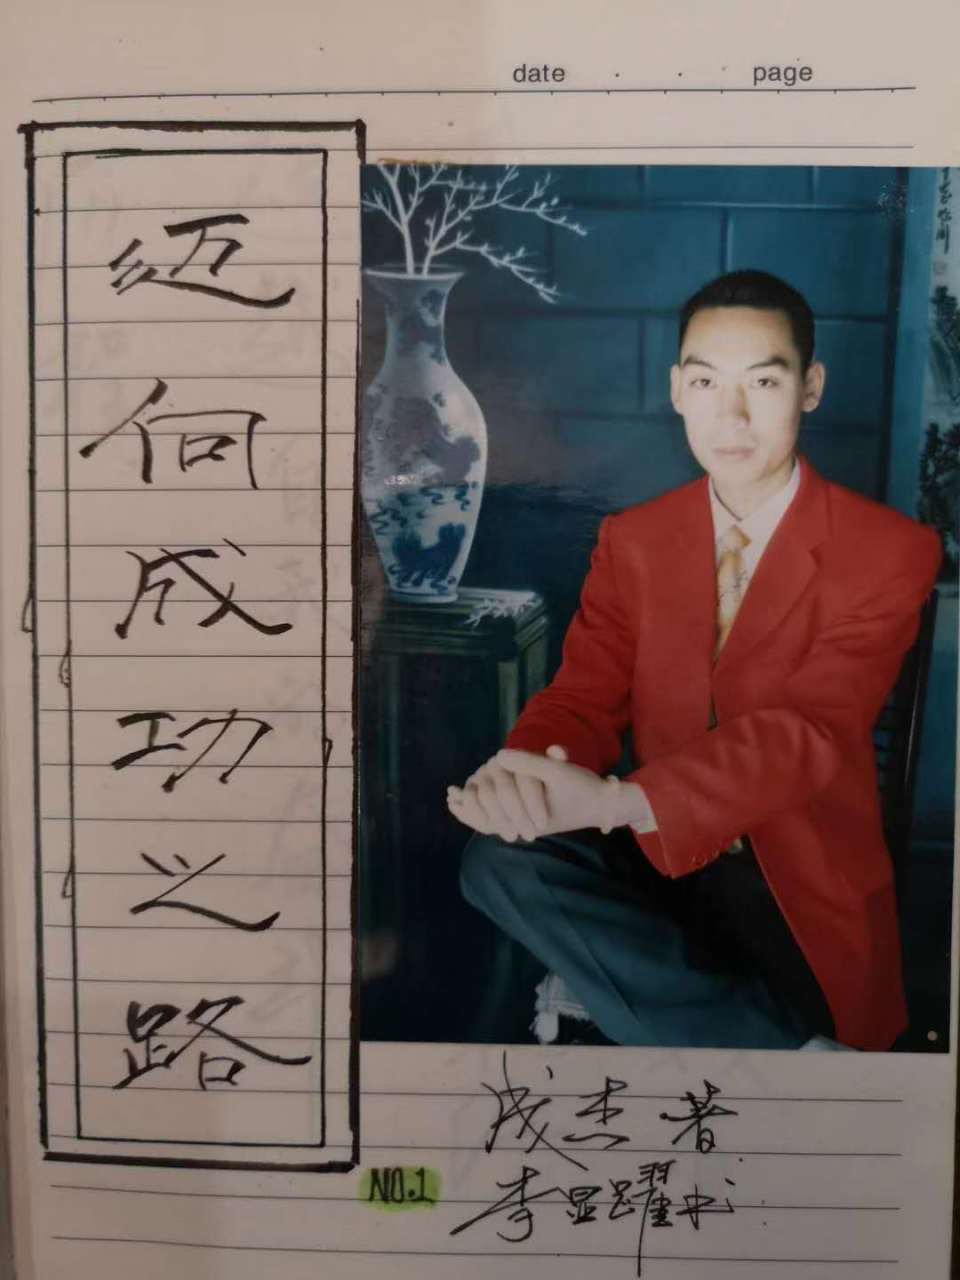 date page
迈向成功之路
成杰著
李显跃书
NO.1